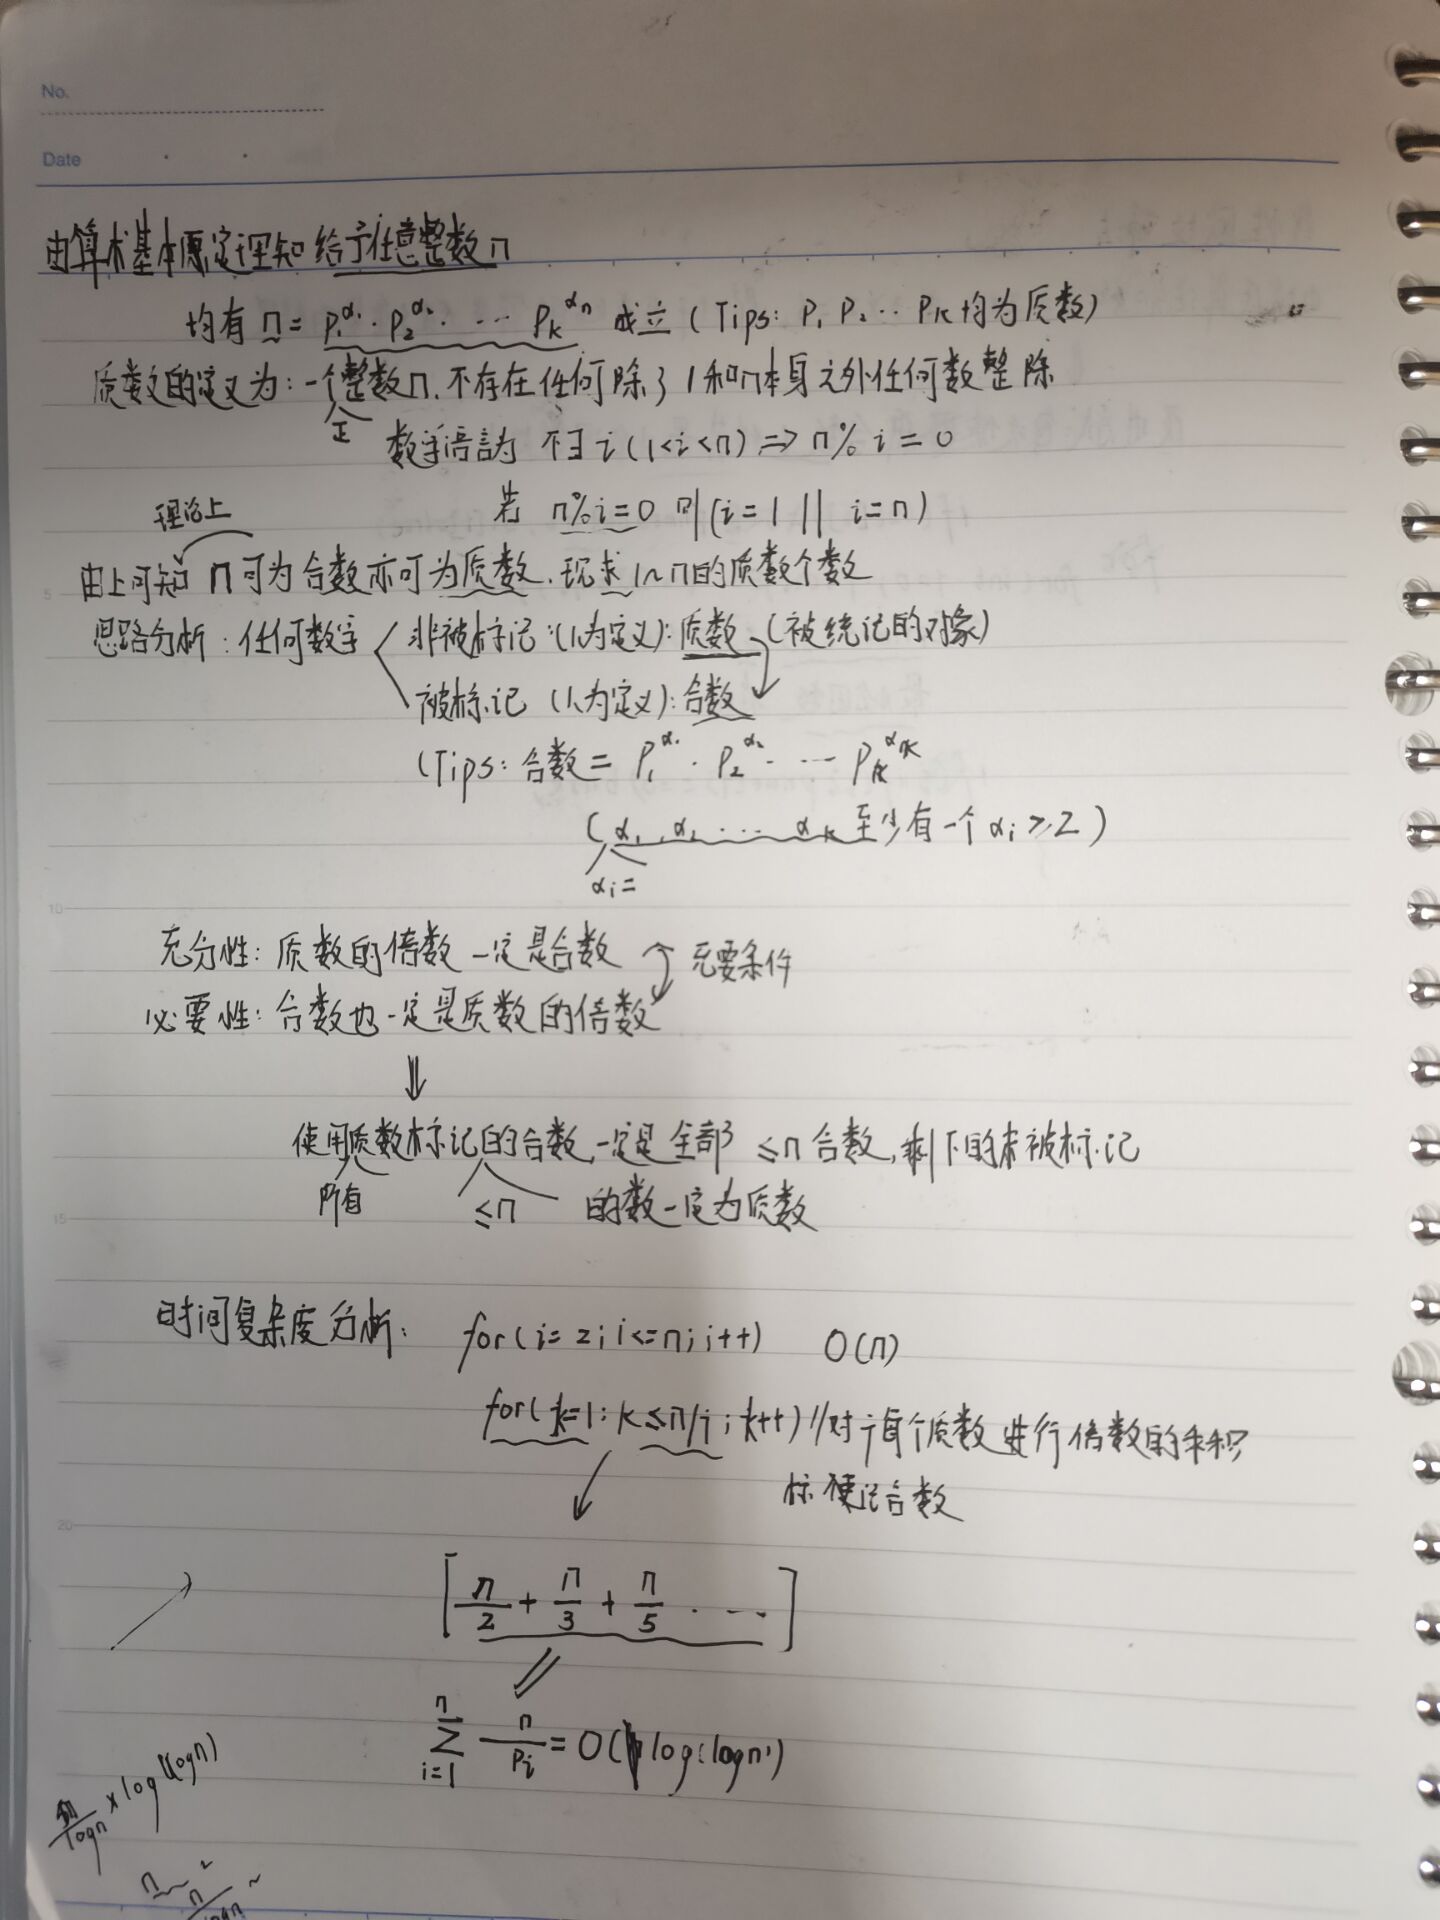 No.
Date
由算术基本原定理知给予任意整数n
均有 n = P₁^α₁ · P₂^α₂ · ... Pₖ^αₙ 成立 (Tips: P₁ P₂ ·· Pₖ 均为质数)
质数的定义为: 一个整数n, 不存在任何除了1和n本身之外任何数整除
正
数学语言为 不∃ i (1<i<n) ⇒ n% i = 0
若 n%i=0 则(i=1 || i=n)
理论上
由上可知 n可为合数亦可为质数, 现求1~n的质数个数
5
思路分析: 任何数字 非被标记:(人为定义): 质数 (被统记的对象)
被标记 (人为定义): 合数
(Tips: 合数 = P₁^α₁ · P₂^α₂ · ... Pₖ^αₖ
(α₁, α₂ ... αₖ 至少有一个 αᵢ ≥ 2)
αᵢ =
10
充分性: 质数的倍数一定是合数 充要条件
必要性: 合数也一定是质数的倍数
⇓
使用质数标记的合数, 一定是全部 ≤n 合数, 剩下的未被标记
所有 ≤n 的数一定为质数
15
时间复杂度分析: for(i=2; i<=n; i++) O(n)
for(k=1; k≤n/i; k++) //对于每个质数进行倍数的乘积
标记合数
20
[n/2 + n/3 + n/5 · ...]
∑ᵢ₌₁ⁿ n/Pᵢ = O( log(logn))
n/logn × log(logn)
n
n/logn